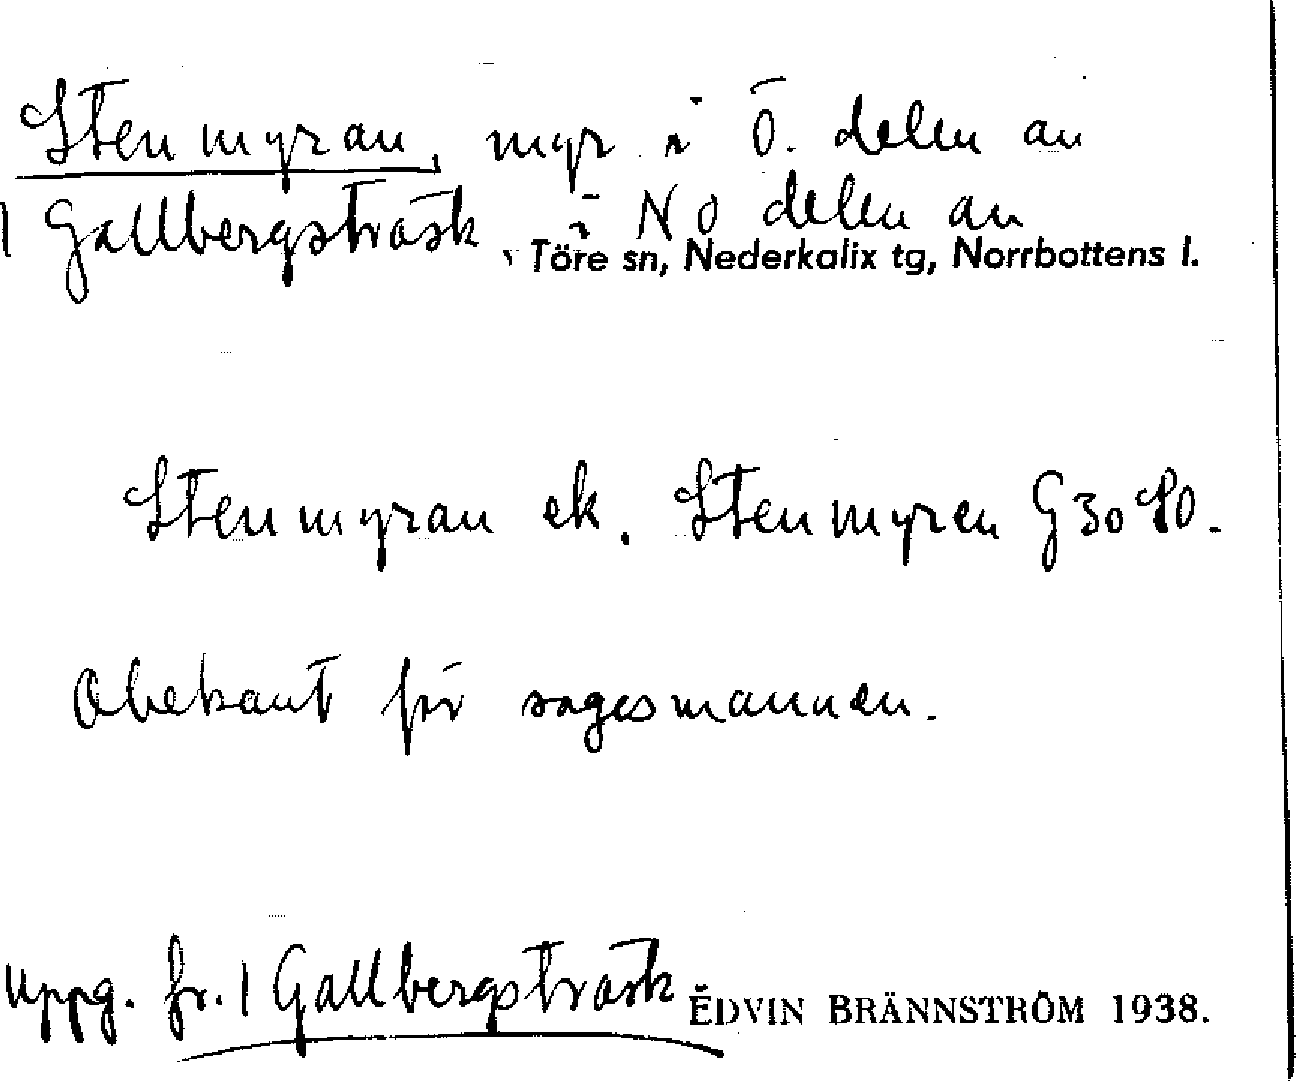 Stenmyran, myr i Ö. delen av
1 Gallbergsträsk i NO delen av
, Töre sn, Nederkalix tg, Norrbottens l.
Stenmyran ek. Stenmyren G 30 SO.
Obekant för sagesmannen.
uppg. fr. 1 Gallbergsträsk EDVIN BRÄNNSTRÖM 1938.